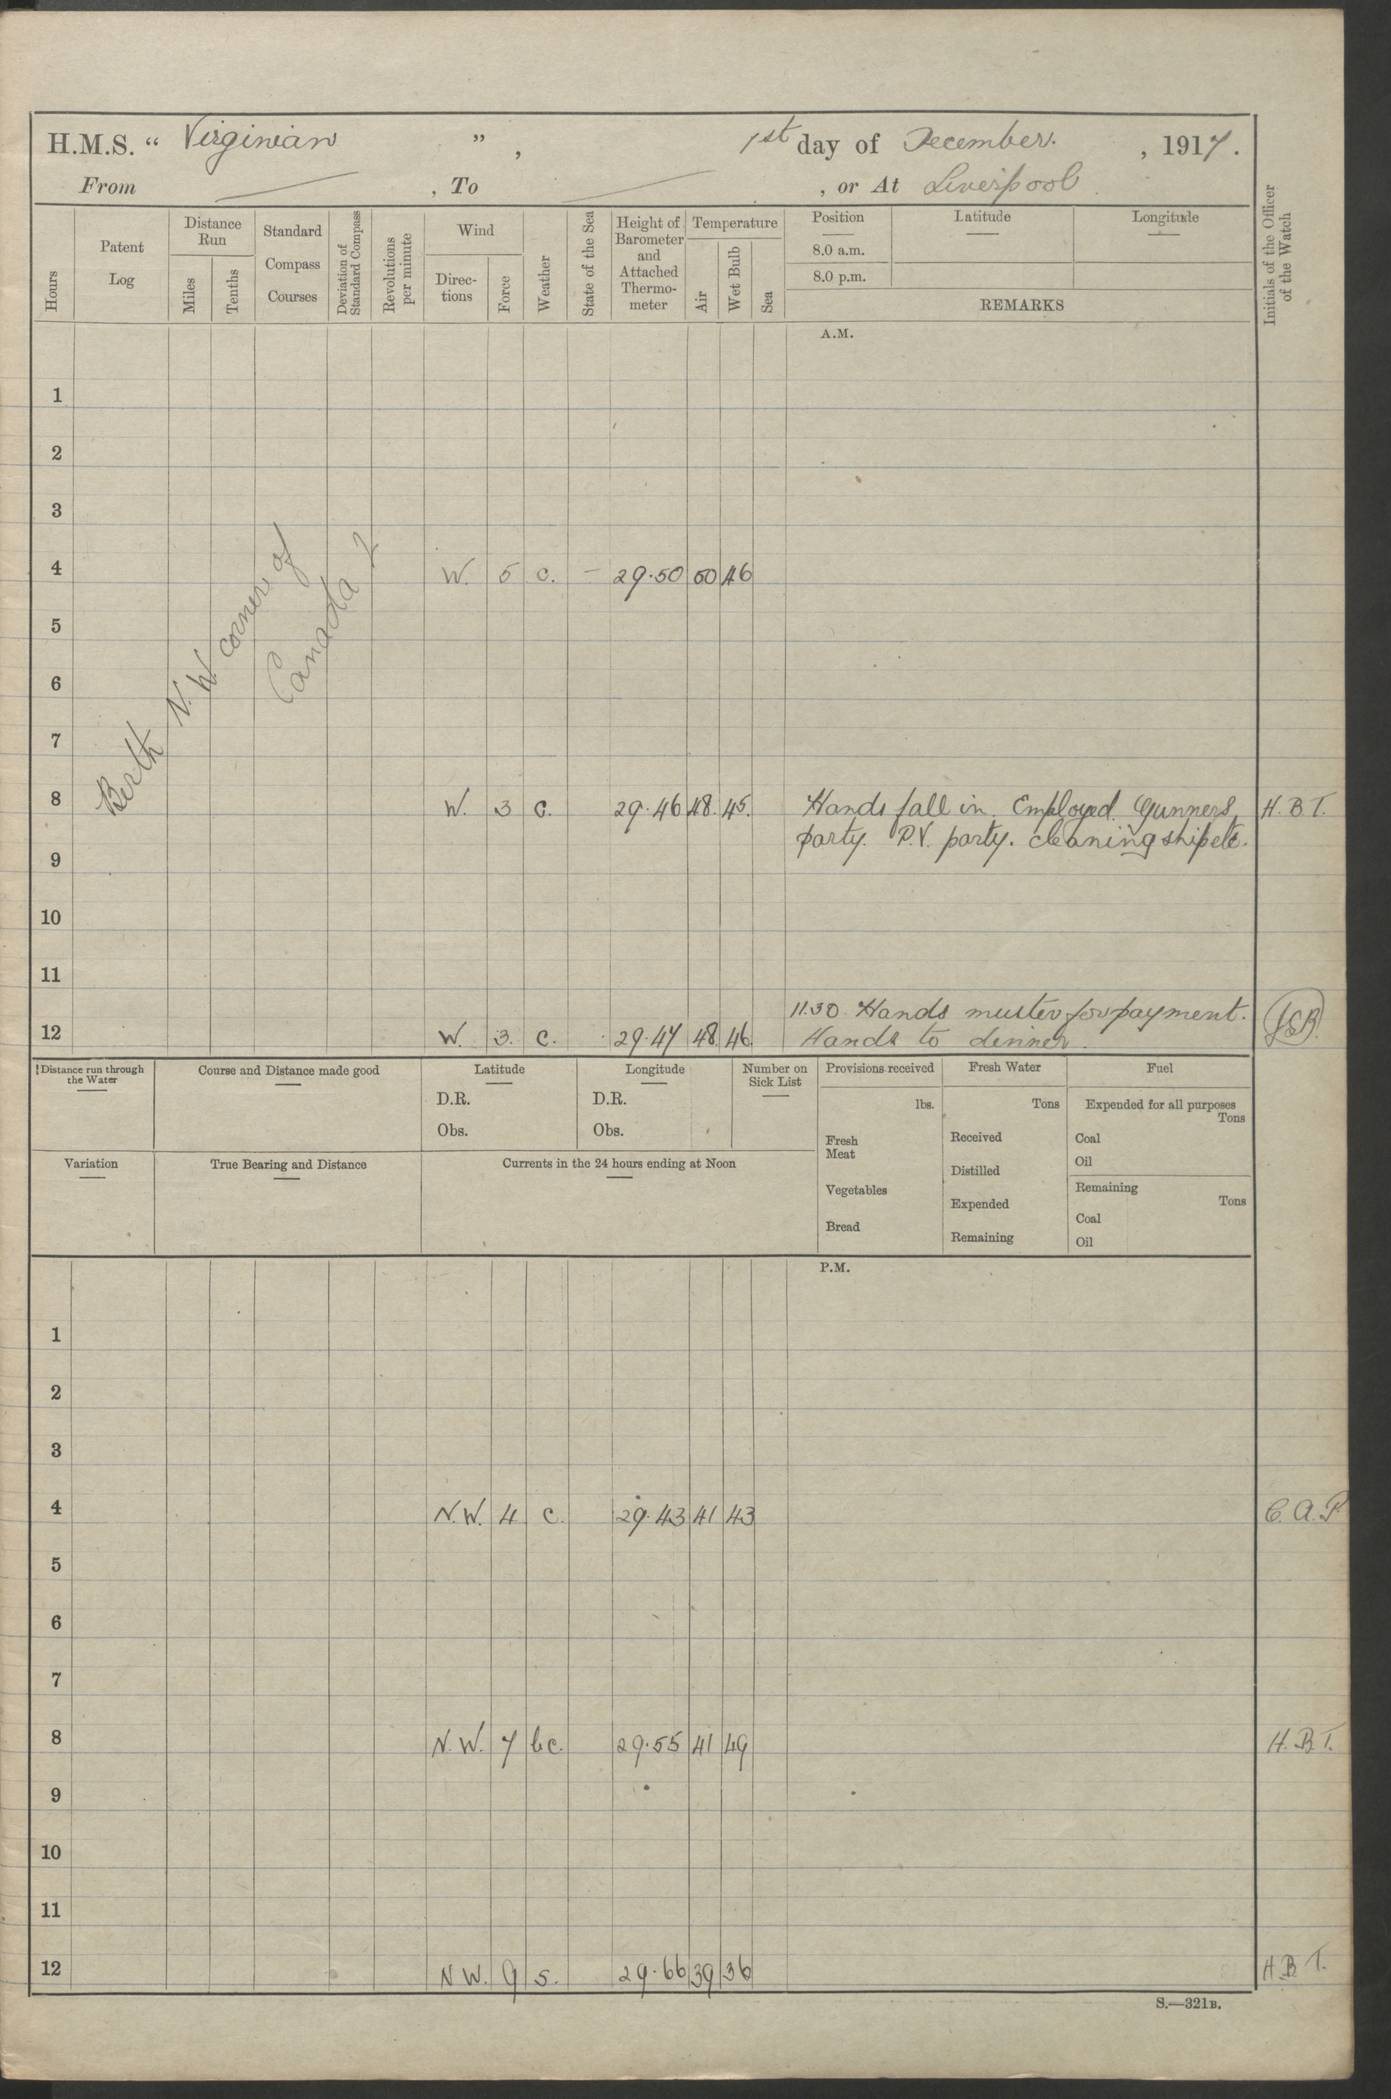 H.M.S. “ Virginian ” , 1st day of December. , 1917.
From , To , or At Liverpool
Hours
Patent Log
Distance Run
Miles
Tenths
Standard Compass Courses
Deviation of Standard Compass
Revolutions per minute
Wind
Direc-tions
Force
Weather
State of the Sea
Height of Barometer and Attached Thermo-meter
Temperature
Air
Wet Bulb
Sea
Position
8.0 a.m.
8.0 p.m.
Latitude
Longitude
REMARKS
Initials of the Officer of the Watch
A.M.
1
2
3
4 W. 5 c. – 29.50 50 46
5
6
7
Berth N.W corner of
Canada 2
8 W. 3 c. 29.46 48. 45. Hands fall in. Employed. Gunners, H.B.T.
party. P.V. party. cleaning ship etc.
9
10
11
11.30 Hands muster for payment.
12 W. 3. c. 29.47 48. 46. Hands to dinner.
Distance run through the Water
Course and Distance made good
Latitude
D.R.
Obs.
Longitude
D.R.
Obs.
Number on Sick List
Provisions received
lbs.
Fresh Meat
Vegetables
Bread
Fresh Water
Tons
Received
Distilled
Expended
Remaining
Fuel
Expended for all purposes
Tons
Coal
Oil
Remaining
Tons
Coal
Oil
Variation
True Bearing and Distance
Currents in the 24 hours ending at Noon
P.M.
1
2
3
4 N.W. 4 c. 29.43 41 43 C.A.P
5
6
7
8 N.W. 7 bc. 29.55 41 49 H.B.T.
9
10
11
12 N W. 9 s. 29.66 39 36 H.B.T.
S.—321B.